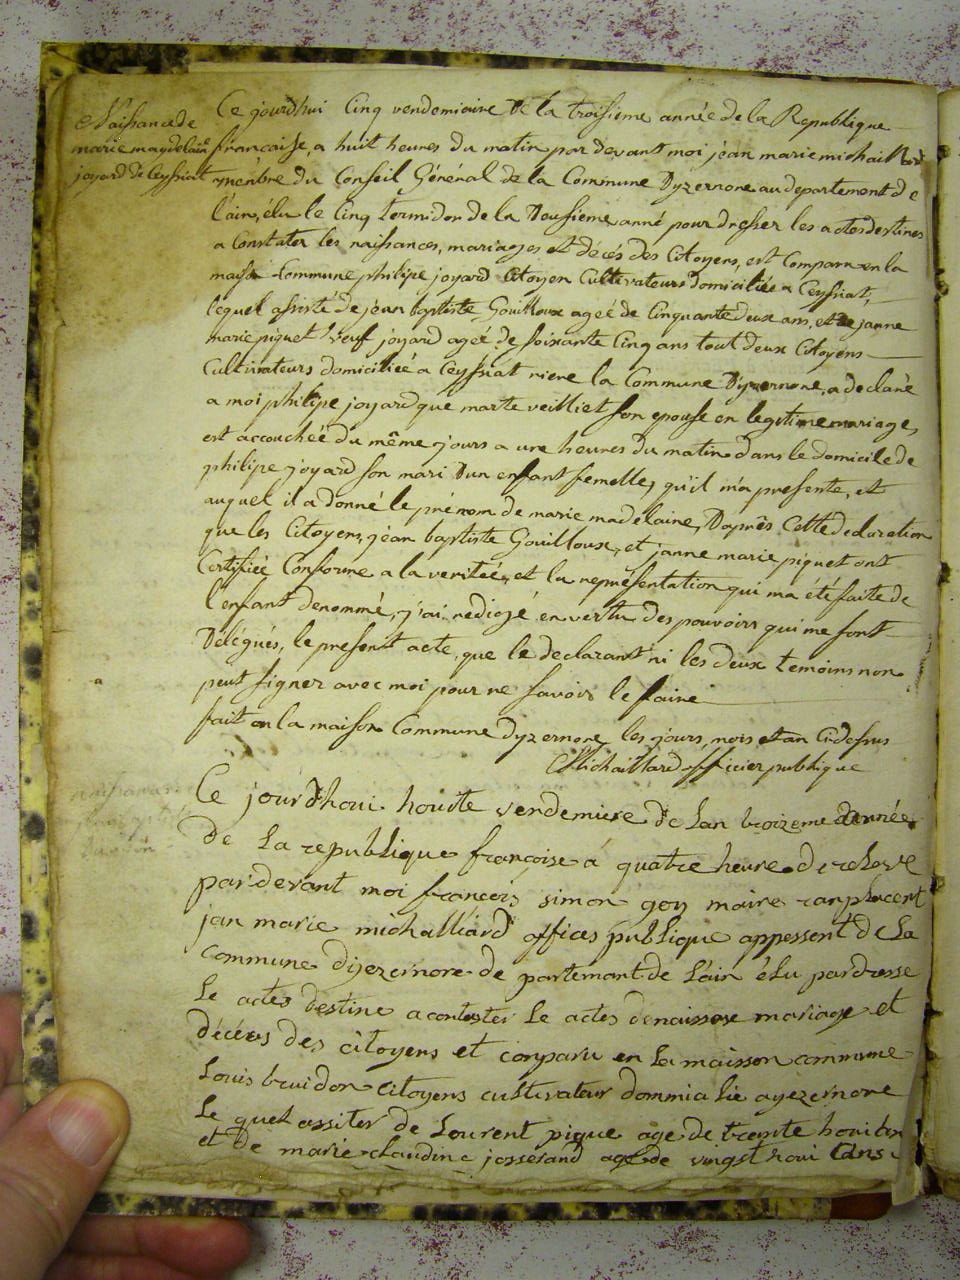 Naissance de
marie magdelaine
joyard de Ceyssiat
Ce jourd'hui Cinq vendemiaire de la troisieme année de la Republique
francaise, a huit heures du matin par devant moi jean marie michaillard
membre du Conseil Général de la Commune Dyzernore au departement de
l'ain, élu le Cinq termidor de la Deusieme anné pour dresser les actes destines
a Constater les naissances, mariages et décés des Citoyens, est Comparu en la
maison Commune philipe joyard Citoyen Cultivateurs domiciliée a Ceyssiat,
lequel assisté de jean baptiste Gouilloux agéé de Cinquante deux ans, et de janne
marie piquet veuf joyard agéé de soixante Cinq ans tout deux Citoyens
Cultivateurs domiciliéé a Ceyssiat riere la Commune Dyzernore, a declaré
a moi philipe joyard que marte veilliet son epouse en legitime mariage,
est accouchéé du même jours a une heures du matin dans le domicile de
philipe joyard son mari D'un enfant femelle, qu'il m'a presente, et
auquel il a donné le prénom de marie madelaine, D'aprês Cette declaration
que les Citoyens, jean baptiste Gouilloux, et janne marie piquet ont
Certifiéé Conforme a la veritéé, et la représentation qui ma été faite de
l'enfant denommé, j'ai redigé en vertu des pouvoirs qui me sont
Délégués, le present acte, que le declarant ni les deux temoins non
peut signer avec moi pour ne savoir le faire
fait en la maison Commune Dyzernore les jours, mois et an Cidessus
Michaillard officier publique
naissance
Ce jourdhoui houite vendemiere de lan troizeme année
de la republique françoise a quatre heure de relevé
par devant moi françois simon goy maire ranplacent
jan marie michalliard offices publique appessent de la
commune dyezernore departemant de lain élu par dresse
le actes destine a contater le actes de naissase mariage et
décées des citoyens et conparu en la maisson commune
Louis buidon citoyens cultivateur dommialié ayezernore
le quel assiter de Lourent pique age de trante houi ans
et de marie claudine josserand age de vingst houi ans